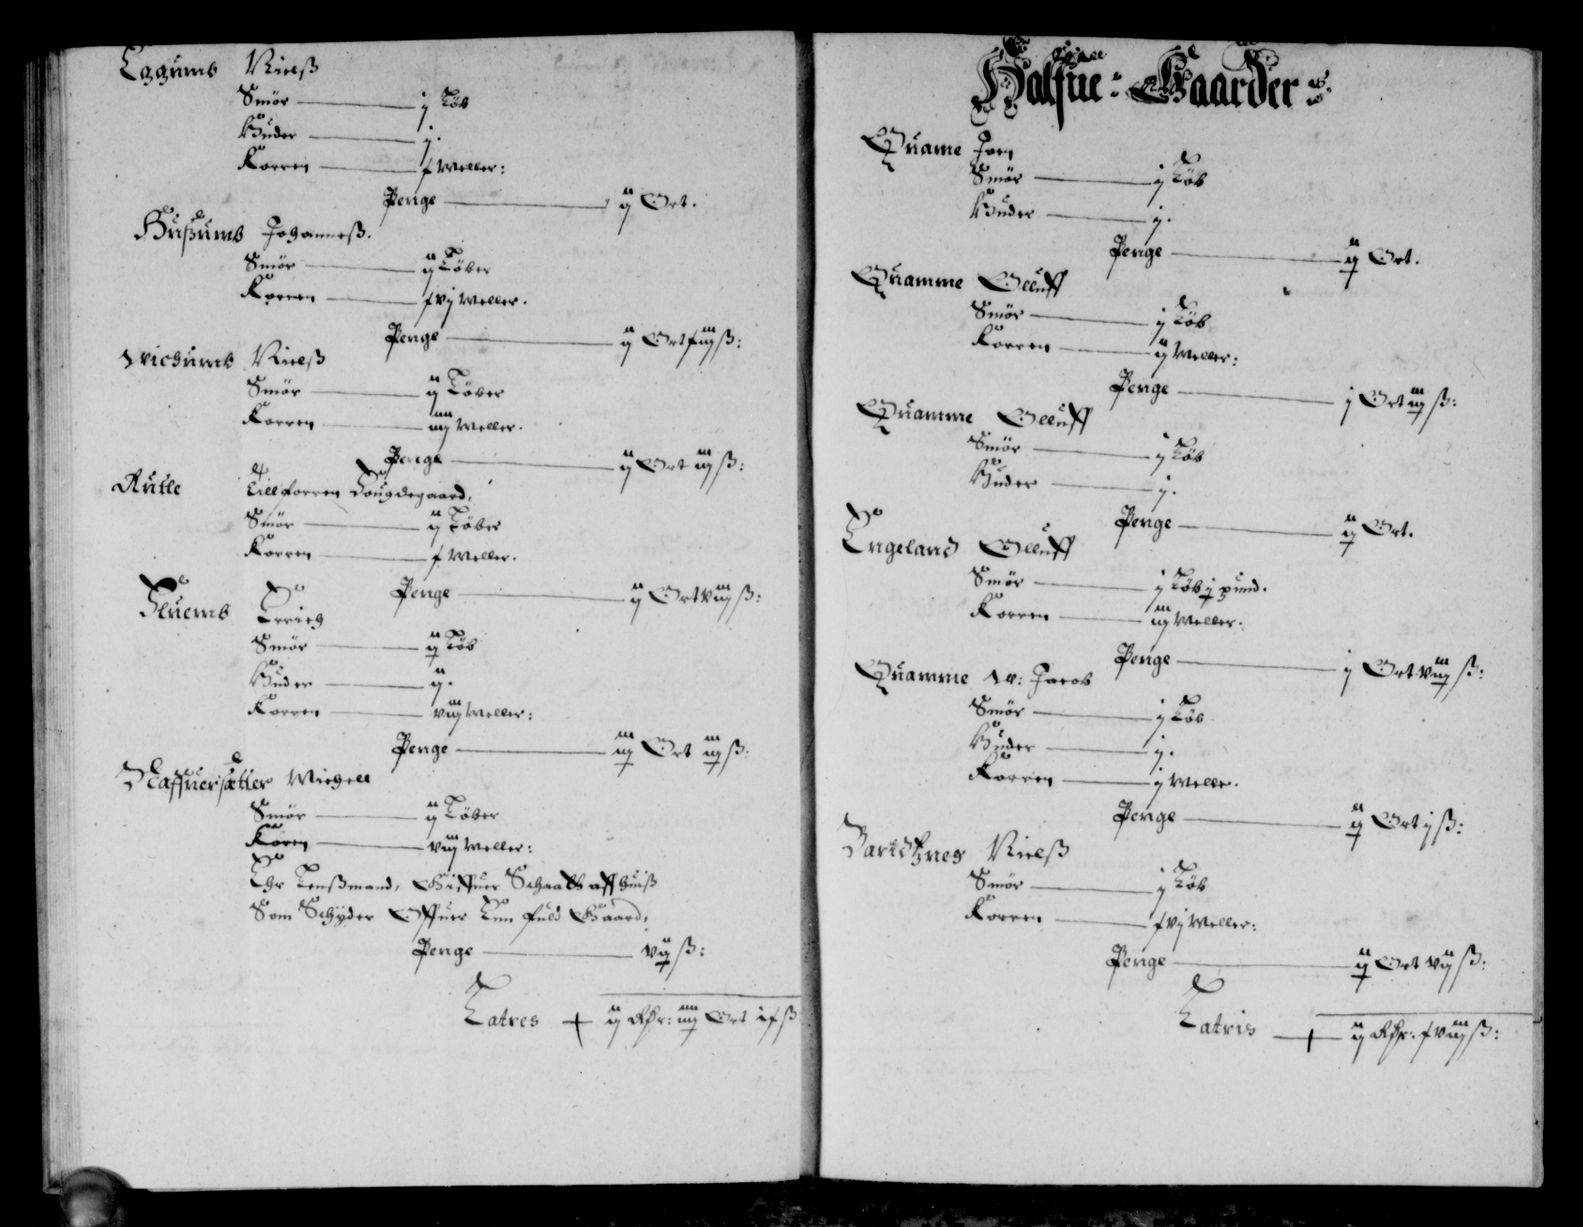 Eggumb Nielß
Smör — j Løb
Huder — j.
Korren — x Meller:
Penge — ij Ort.
Hußumb Johanneß.
Smör — ij Løber
Korren — xvj Meller.
Penge — ij Ort xiiij ß:
Wichumb Nielß
Smör — ij Løber
Korren — iiiij Meller.
Penge — ij Ort iiij ß:
Rutle
Till forren Hougdegaard,
Smör — ij Løber
Korren — x Meller.
Penge — ij Ort viiij ß:
Fluemb Erich
Smör — ij Løb
Huder — ij.
Korren — viiij Meller:
Penge — iiij Ort iiij ß:
Naffuersætter Michell
Smör — ij Løber
Koren — viiij Meller:
Ehr Lenßmand, Giffuer Schaatt aff huiß
Som Schyder Offuer Een fuld Gaard,
Penge — vij ß:
Latres — ij Rdr: iiij Ort ix ß
Halfue: Gaarder:
Quame Joen
Smör — j Løb
Huder — j.
Penge — ij Ort.
Quamme Oluff
Smör — j Løb
Korren — ij Meller:
Penge — j Ort iiij ß:
Quamme Oelluff
Smör — j Løb
Huder — j.
Penge — ij Ort.
Engeland Oelluff
Smör — j Løb j pund.
Korren — iiij Meller.
Penge — j Ort viiij ß:
Quamme W: Jacob
Smör — j Løb
Huder — j.
Korren — j Melle.
Penge — ij Ort j ß:
Nielß
Smör — j Løb
Korren — xvj Meller:
Penge — ij Ort vij ß:
Latris — ij Rdr: xviiij ß: